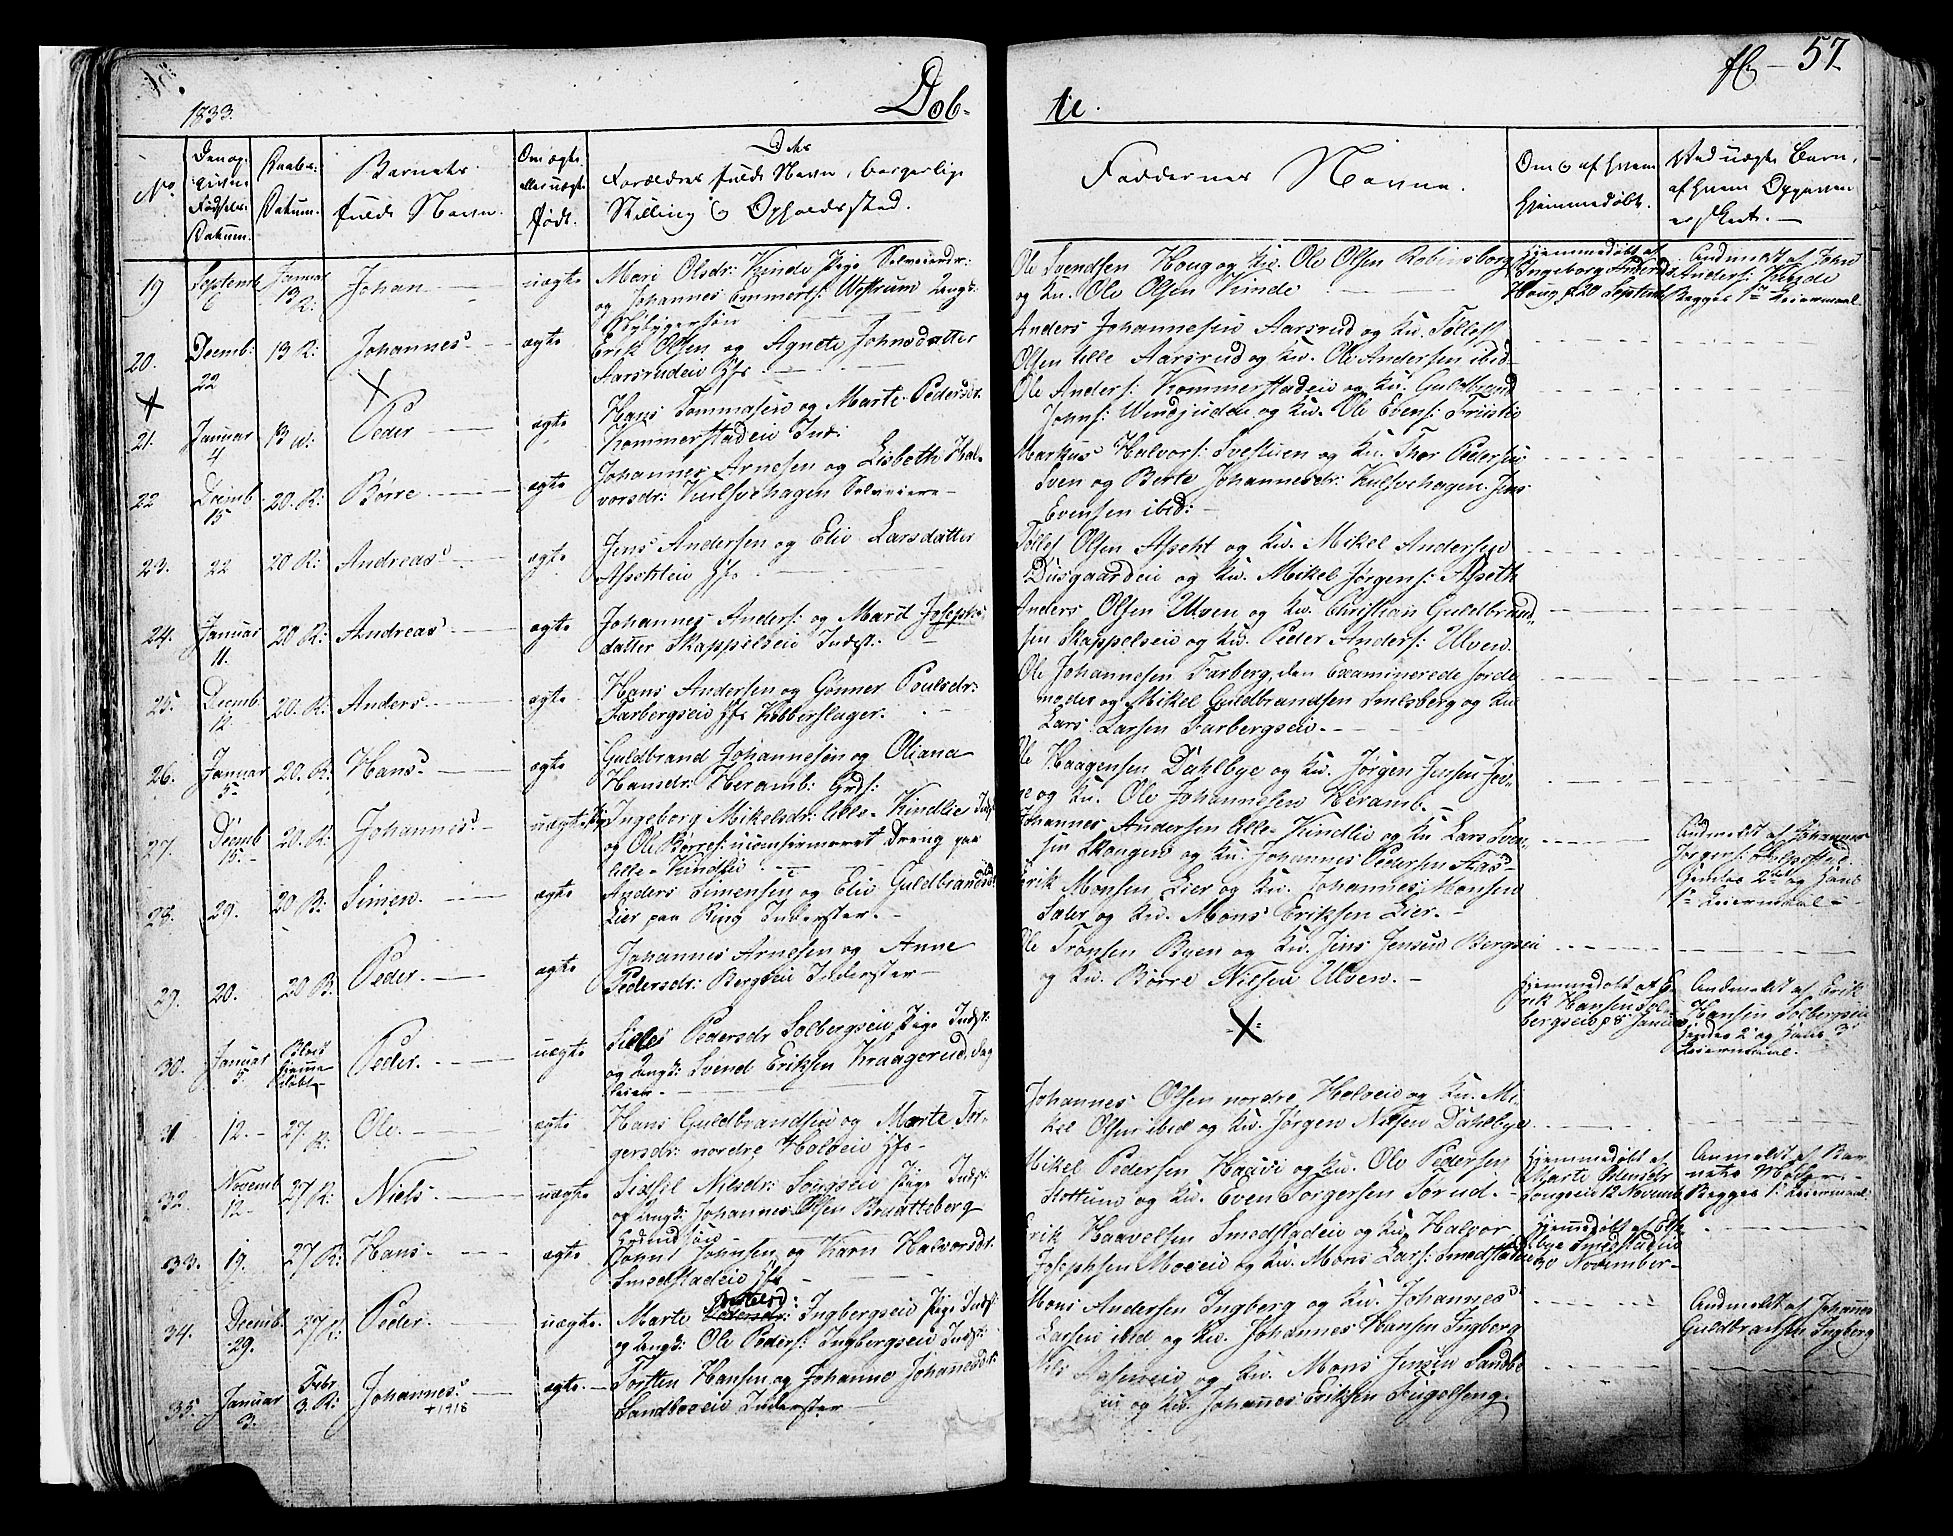 1833.
Døb-
te.
fl. 57
No
Den op-
givne
Fødsels
Datum.
Daabs-
Datum.
Barnets
fulde Navn.
Om ægte
eller uægte
født.
Dets
Forældres fulde Navn, borgerlige
Stilling & Opholdssted.
Faddernes Navne.
Om & af hvem
hjemmedøbt.
Ved uægte Børn,
af hvem Opgaven
er skeet.
19
Septemb
Januar
13 R:
Johan
uægte
Mari Olsdr: Kinde Pige
og Johannes Emmerts: Westrum Ungk:
Ole Svendsen Houg og Ku. Ole Olsen Robinsborg
og Ku. Ole Olsen Kinde
Hjemmedøbt af
Ingeborg
Houg d 20 Septemb
Anmeldt af John
Anders: Kinde
Begges 1ste Leiermaal
20.
Decemb:
22
13 R:
Johannes
ægte
Erik Olsen og Agnete Johnsdatter
Aarsrudeie Hf
Anders Johannesen Aarsrud og Ku. Tollef
Olsen lille Aarsrud og Ku. Ole Andersen ibid
21.
Januar
4
13
Peder
ægte
Hans Tommasen og Marte Pedersdr.
Kommerstadeie Ind:
Ole Anders: Kommerstadeie og Ku. Guldbrand
Johns: Windjudde og Ku. Ole Evens:
22
Decemb
15
20. R:
Børre
ægte
Johannes Arnesen og Lisbeth Hal-
vorsdr: Kulsvehagen Selveiere
Markus Halvors: Svestuen og Ku. Thor Pedersen
Sven og Berte Johannesdr: Kulsvehagen. Jens
Evensen ibid:
23.
22
20 R:
Andreas
ægte
Jens Andersen og Elie Larsdatter
Assetheie Hf
Tollef Olsen Asseht og Ku. Mikel Andersen
Diisgaardeie og Ku. Mikel Jørgens: Asseth
24.
Januar
11.
20 R:
Andreas
ægte
Johannes Anders: og Marit Josephs-
datter Skappelseie Indst:
Anders Olsen Ulven og Ku. Christian Guldbrand-
sen Skappelseie og Ku. Peder Anders: Ulven.
25.
Decemb
12
20. R:
Anders
ægte
Hans Andersen og Gønner Poulsdr:
Farbergseie Hf Kobberslager.
Ole Johannesen Farberg, den Examinerede Jorde-
moder og Mikel Guldbrandsen Smelsberg og Ku
Lars Larsen Farbergseie.
26.
Januar
5
20. R:
Hans
ægte
Guldbrand Johannesen og Oliana
Hansdr: Heramb: Grds:
Ole Haagensen Dahlbye og Ku. Jørgen Jensen
og Ku. Ole Johannesen Heramb.
27.
Decemb
15.
20. R:
Johannes
uægte
Pige Ingeborg Mikelsdr: lille Kindlie Indst
og Ole Børres: uconfirmeret Dreng paa
lille Kindlie
Johannes Andersen lille Kindlie og Ku Lars Sven-
sen Skougen og Ku. Johannes Pedersen
Anmeldt af Johannes
Jørgens:
hendes 2det og hans
1ste Leiermaal
28.
29.
20 R:
Simen
ægte
Anders Simensen og Elie Guldbrandsdr
Lier paa Ring Inderster.
Erik Monsen Lier og Ku. Johannes Monsen
Sæter og Ku. Mons Eriksen Lier.
29.
20.
20 R.
Peder
ægte
Johannes Arnesen og Anne
Pedersdr: Bergseie Inderster
Ole Tronsen Byen og Ku. Jens Jensen Bergseie
og Ku. Børre Nilsen Ulven.
30.
Januar
5.
Blev
hjemme
døbt
Peder.
uægte
Pedersdr Solbergseie Pige Indst:
og Ungk: Svend Eriksen Kraagerud, Dag
leier
X
Hjemmedøbt af E-
rik Hansen Sol-
bergseie p 8 Januar
Anmeldt af Erik
Hansen Solbergseie
hendes 2 og hans 3
Leiermaal.
31
12.
27. R:
Ole
ægte
Hans Guldbrandsen og Marte Tor-
gersdr: nordre Holøeie Hf
Johannes Olsen nordre Holøeie og Ku. Mi-
kel Olsen ibid og Ku. Jørgen Nilsen Dahlbye
32.
Novemb
12
27 R:
Niels
uægte
Sidsil Nilsdr: Songseie Pige Indst:
og Ungk: Johannes Olsen Braatteberg
Mikel Pedersen Haavi og Ku. Ole Pedersen
Slottum og Ku. Even Torgersen Sørud.
Hjemmedøbt af
Marte
Songseie 12 Novemb
Anmeldt af Bar-
nets Moder
Begges 1ste Leiermaal
33.
19.
27 R:
Hans
ægte
Johnsen og Karn Halvorsdr.
Smedstadeie Hf
Erik Haavelsen Smedstadeie og Ku. Halvor
Josephsen Moeeie og Ku. Mons Lars: Smedstadeie
Hjemmedøbt af
Smedstadeie
30 November
34.
Decemb:
29.
27 R:
Peder
uægte.
Marte Pedersdr: Ingbergseie Pige Indst:
og Ungk: Ole Peders: Ingbergseie Indst:
Mons Andersen Ingberg og Ku. Johannes
Larsen ibid og Ku. Johannes Hansen Ingberg
Anmeldt af Johannes
Guldbrandsen Ingberg
35.
Januar
3.
Febr
3. R:
Johannes
+1918
ægte
Torsten Hansen og Johanne Johannesdr:
Sandboeie Inderster
og Ku. Mons Jensen Sandbo
eie og Ku. Johannes Eriksen Fugelseng.